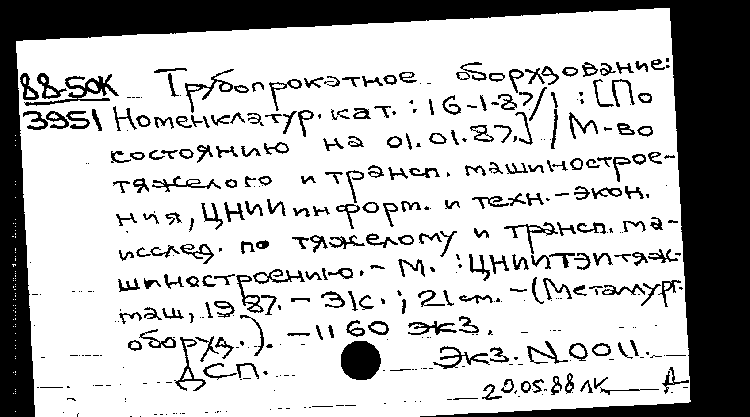 88-50К Трубопрокатное оборудование:
3951 Номенклатур. кат. : 16-1-87/ : [По
состоянию на 01.01.87.] / М-во
тяжелого и трансп. машинострое-
ния, ЦНИИ информ. и техн.-экон.
исслед. по тяжелому и трансп. ма-
шиностроению. - М. : ЦНИИТЭИтяж-
маш, 1987. - 31с. ; 21 см. - (Металлург.
оборуд.). - 1160 экз.
ДСП. Экз. N 0011.
20.05.88 ЛК А